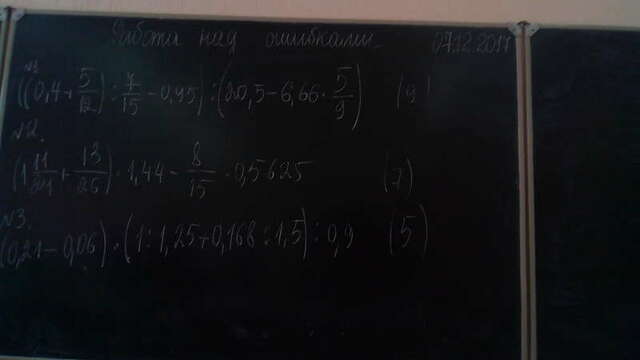 Работа над ошибками. 07.12.2017
№1
((0,4+5/12):7/15-0,95):(20,5-6,66·5/9) (9)
№2.
(1 11/24+13/36)·1,44-8/15·0,5625 (7)
№3.
(0,21-0,06)·(1:1,25+0,168:1,5):0,9 (5)